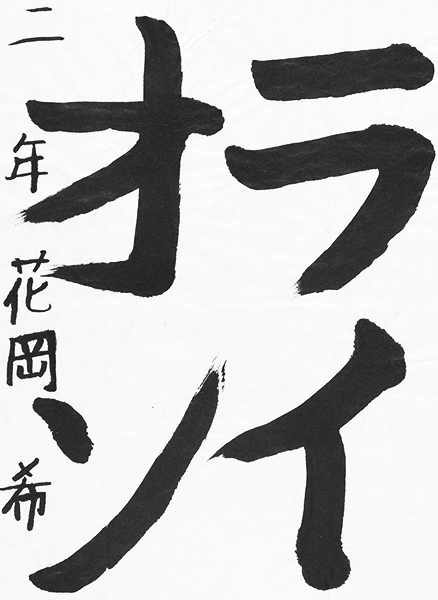 ライ
オン
二年 花岡 希